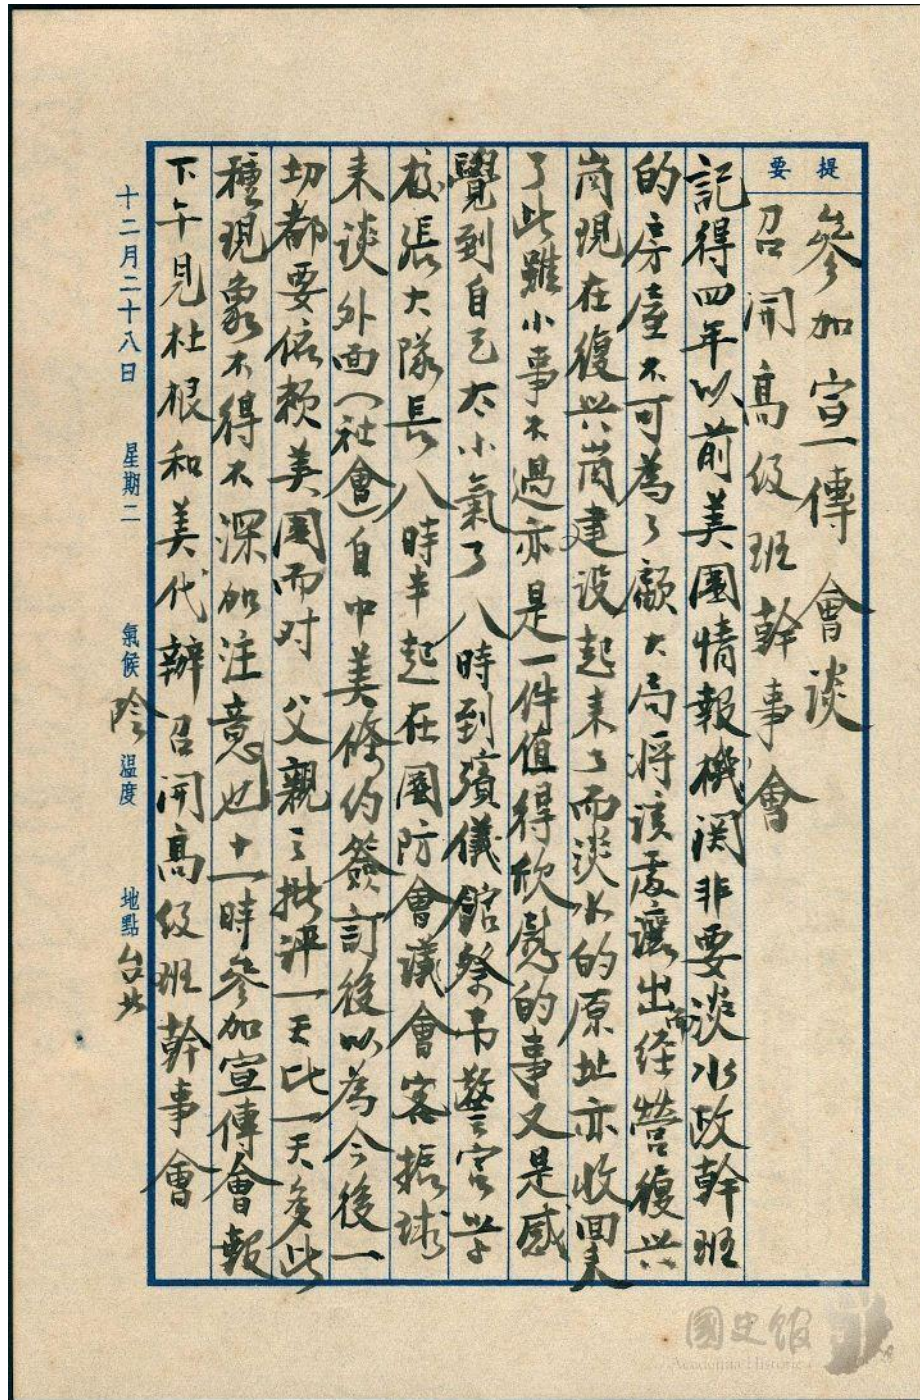 提要
參加宣傳會談
召開高級班幹事會
記得四年以前美國情報機関非要淡水政幹班
的房屋不可為了顧大局将該處讓出而経營復兴
崗現在復兴崗建設起来了而淡水的原址亦收回来
了此雖小事不過亦是一件值得欣慰的事又是感
覺到自己太小氣了八時到殯儀館祭弔警官学
校張大隊長八時半起在國防會議會客振球
来談外面（社會）自中美條約簽訂後以為今後一
切都要依赖美國而对 父親之批评一天比一天多此
種現象不得不深加注意也十一時參加宣傳會報
下午見杜根和美代辦召開高級班幹事會
十二月二十八日 星期二 氣候 陰 溫度 地點 台北
國史館
Academia Historica